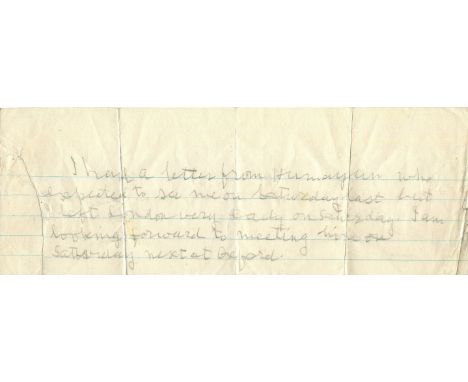 I have a letter from Humayun who
expected to see me on Saturday last but
I left London very early on Saturday. I am
looking forward to meeting him on
Saturday next at Oxford.